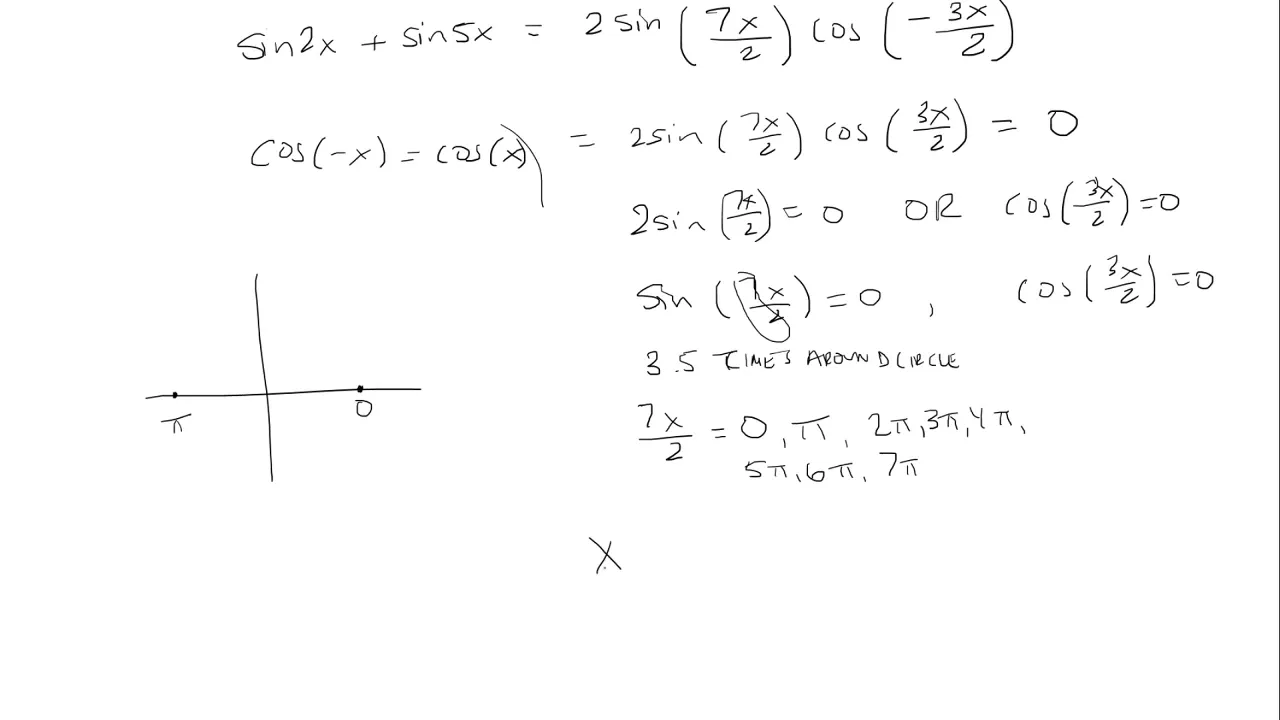 sin2x + sin5x = 2 sin (7x/2) cos (-3x/2)
cos(-x) = cos(x) = 2sin (7x/2) cos (3x/2) = 0
2sin (7x/2) = 0 OR cos(3x/2) = 0
sin (7x/2) = 0 , cos(3x/2) = 0
3.5 TIMES AROUND CIRCLE
π 0
7x/2 = 0, π, 2π, 3π, 4π,
5π, 6π, 7π
X